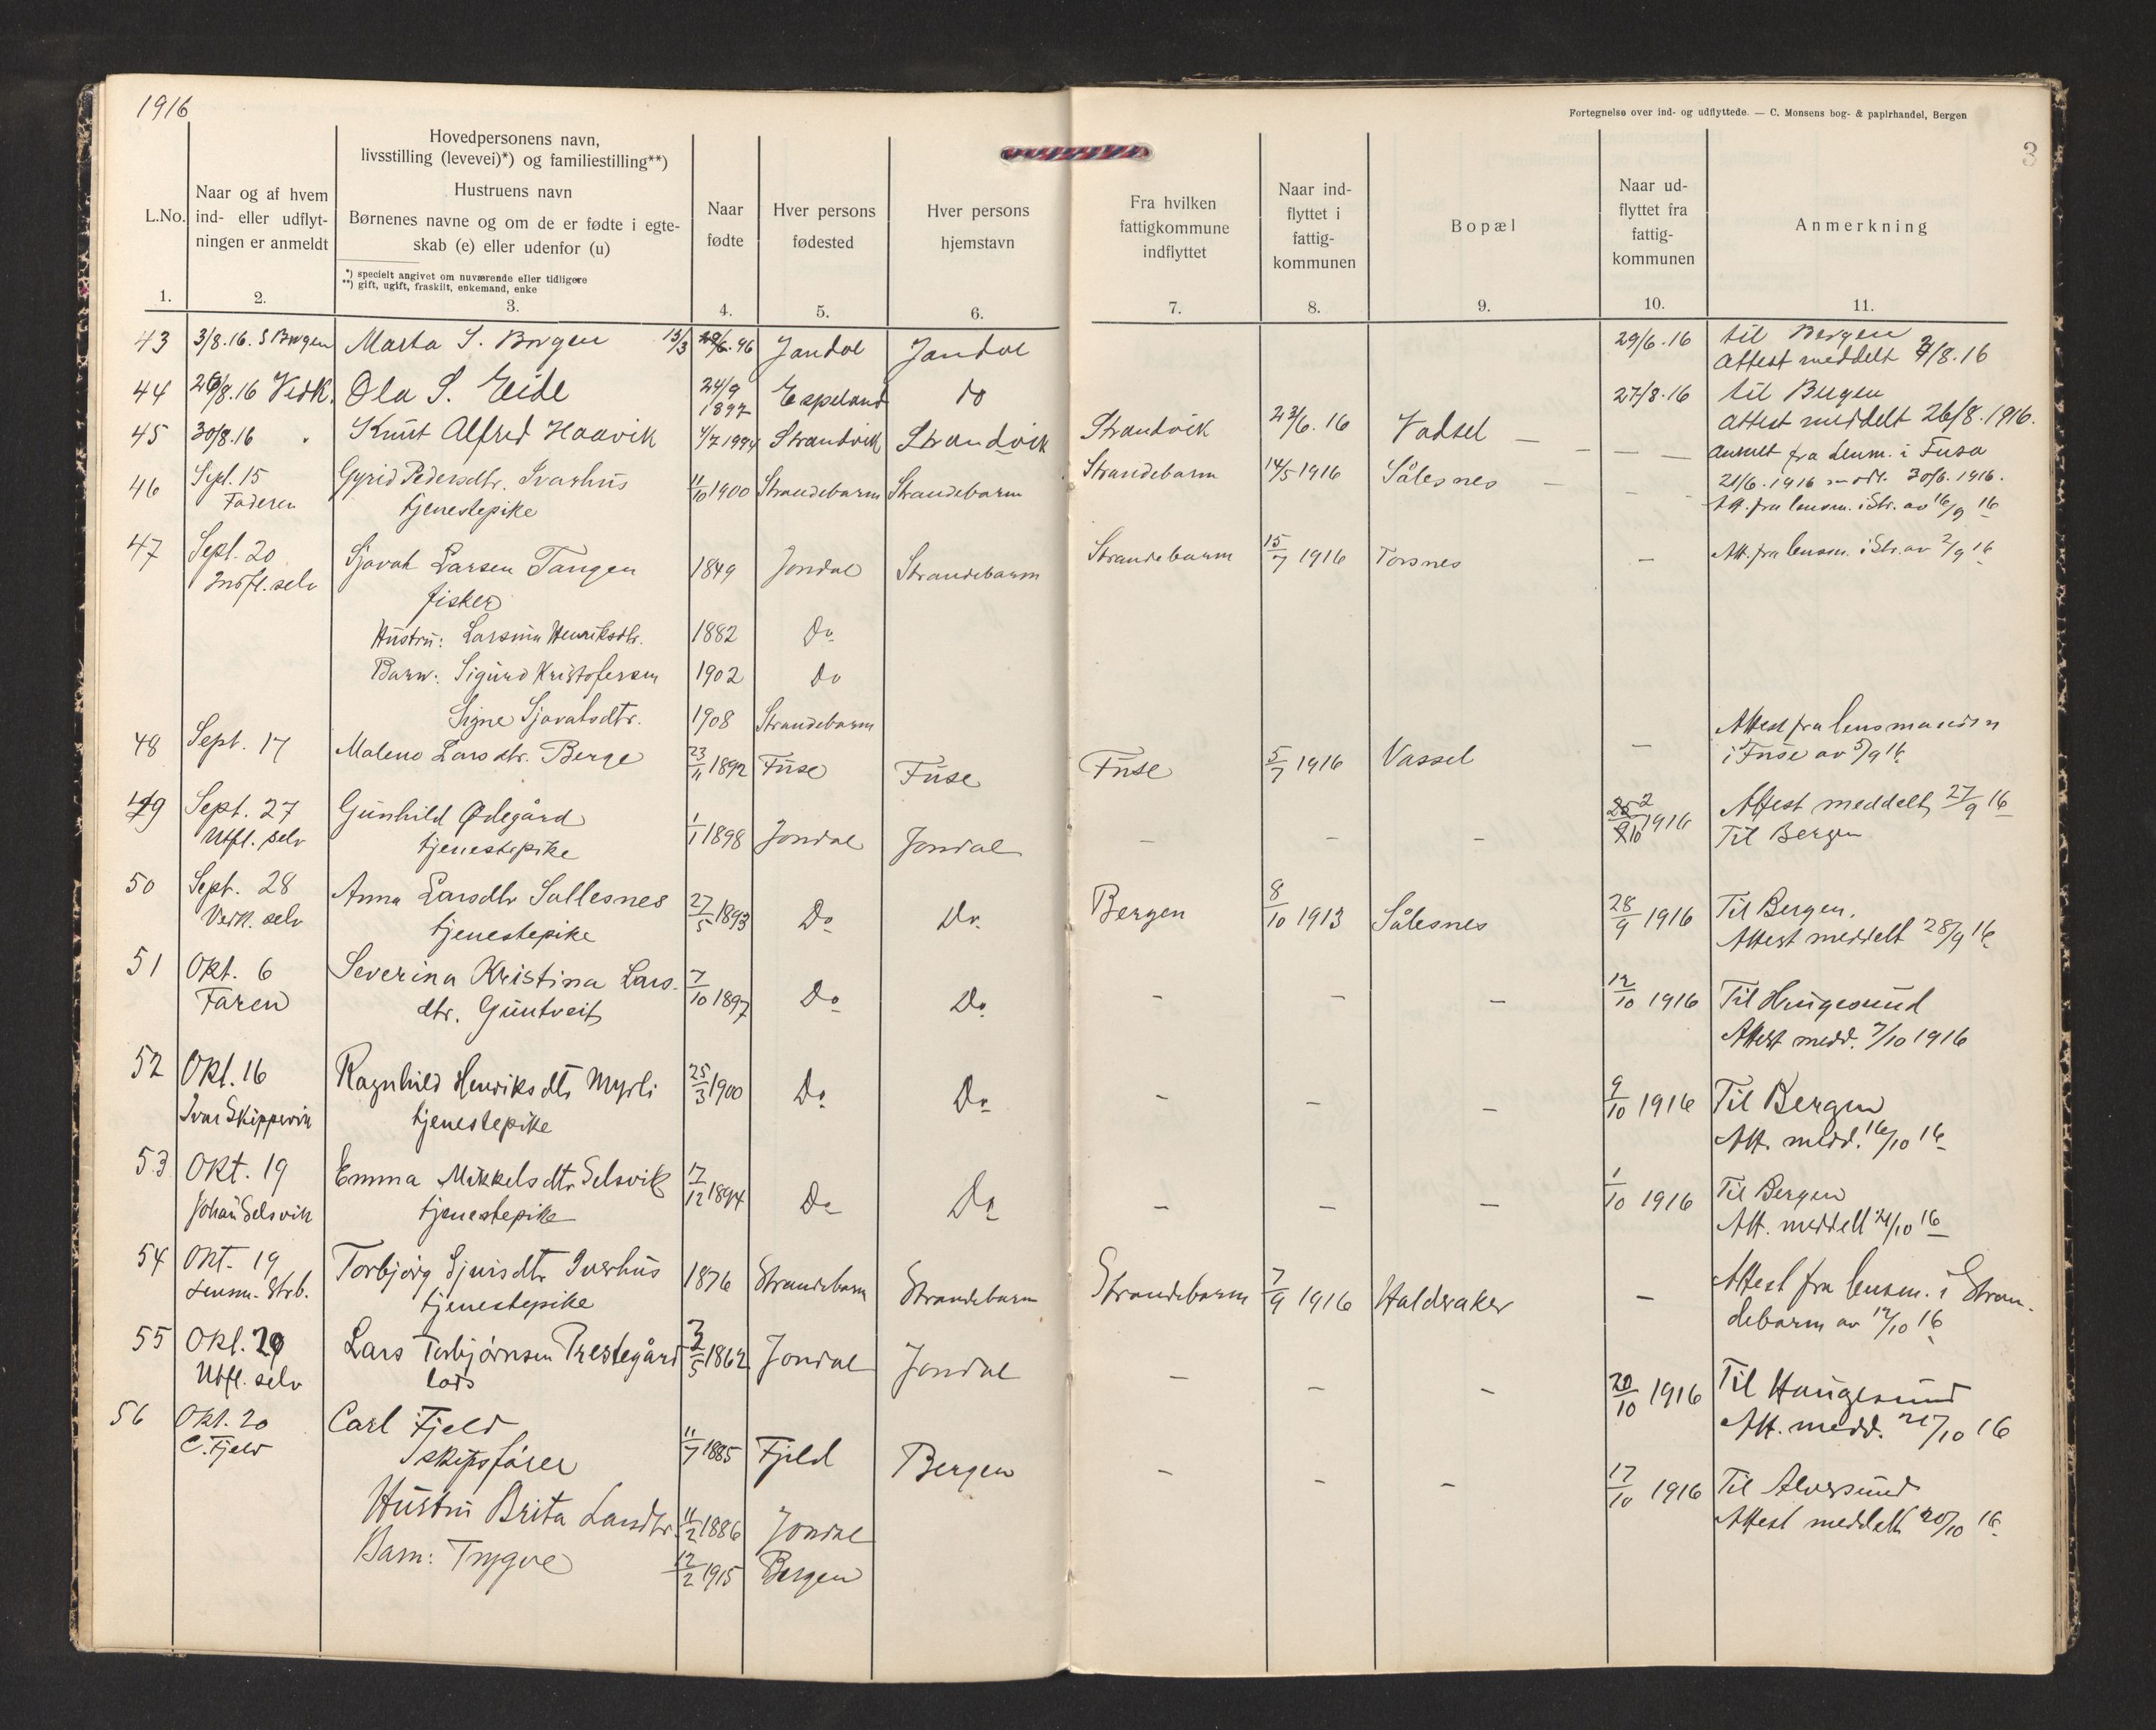 1916
Fortegnelse over ind- og udflyttede. — C. Monsens bog- & papirhandel, Bergen
3
L.No.
Naar og af hvem
ind- eller udflyt-
ningen er anmeldt
Hovedpersonens navn,
livsstilling (levevei)*) og familiestilling**)
Hustruens navn
Børnenes navne og om de er fødte i egte-
skab (e) eller udenfor (u)
*) specielt angivet om nuværende eller tidligere
**) gift, ugift, fraskilt, enkemand, enke
Naar
fødte
Hver persons
fødested
Hver persons
hjemstavn
Fra hvilken
fattigkommune
indflyttet
Naar ind-
flyttet i
fattig-
kommunen
Bopæl
Naar ud-
flyttet fra
fattig-
kommunen
Anmerkning
1. 2. 3. 4. 5. 6. 7. 8. 9. 10. 11.
43 3/8.16. S Borgen Marta S. Borgen 15/3 96 Jondal Jondal 29/6.16 til Bergen
Attest meddelt /8.16
44 26/8.16 Vedk. Ola S. Eide 24/9 1897 Espeland do 27/8.16 til Bergen
attest meddelt 26/8.1916.
45 30/8.16 " Knut Alfred Haavik 4/7 1994 Strandvik Strandvik Strandvik 23/6.16 Vadsel — — — — anmelt fra lensm. i Fusa
21/6.1916 30/6.1916.
46 Sept. 15 Gyrid Pedersdtr. Ivarhus 11/10 1900 Strandebarm Strandebarm Strandebarm 14/5 1916 Sålesnes — — - fra lensm. i Str. av 16/9 16
Faderen tjenestepike
47 Sept. 20 Sjovat Larsen Tangen 1849 Jondal Strandebarm Strandebarm 15/7 1916 Torsnes — Att. fra lensm. i Str. av 2/9 16
Indfl. selv fisker
Hustru: Larsina Henriksdtr. 1882 Do
Barn: Sigurd Kristofersen 1902 Do
Signe Sjovatsdtr. 1908 Strandebarm
48 Sept. 17 Malene Larsdtr. Berge 23/11 1892 Fuse Fuse Fuse 5/7 1916 Vassel — Attest fra lensmanden
i Fuse av 5/9 16
49 Sept. 27 Gunhild Ødegård 1/1 1898 Jondal Jondal — — — 2/10 1916 Attest meddelt 27/9 16
Utfl. selv tjenestepike Til Bergen
50 Sept. 28 Anna Larsdtr Sallesnes 27/5 1893 Do Do. Bergen 8/10 1913 Sålesnes 28/9 1916 Til Bergen.
Vedk. selv tjenestepike Attest meddelt 28/9 16
51 Okt. 6 Severina Kristina Lars- 7/10 1897 Do Do. — — — 12/10 1916 Til Haugesund
Faren dtr. Guntveit Attest medd. 7/10 1916
52 Okt. 16 Ragnhild Henriksdtr Myrli 25/3 1900 Do Do — — — 9/10 1916 Til Bergen
Ivar Skippervik tjenestepike Att. medd. 16/10 16
53 Okt. 19 Emma Mikkelsdtr Selsvik 17/12 1894 Do Do — — — 1/10 1916 Til Bergen
Johan Selsvik tjenestepike Att. meddelt 21/10 16
54 Okt. 19 Torbjørg Sjursdtr Iverhus 1876 Strandebarm Strandebarm Strandebarm 7/9 1916 Halderaker — Attest fra lensm. i Stran-
Lensm. Strb. tjenestepike debarm av 12/10 16
55 Okt. 20 Lars Torbjørnsen Prestegård 3/5 1862 Jondal Jondal — — — 20/10 1916 Til Haugesund
Utfl. selv lods Att. medd. 21/10 16
56 Okt. 20 Carl Fjeld 11/7 1885 Fjeld Bergen — — — 17/10 1916 Til Alversund
C. Fjeld skipsfører Attest meddelt 20/10 16
Hustru Brita Larsdtr. 11/2 1886 Jondal
Barn: Trygve 12/2 1915 Bergen